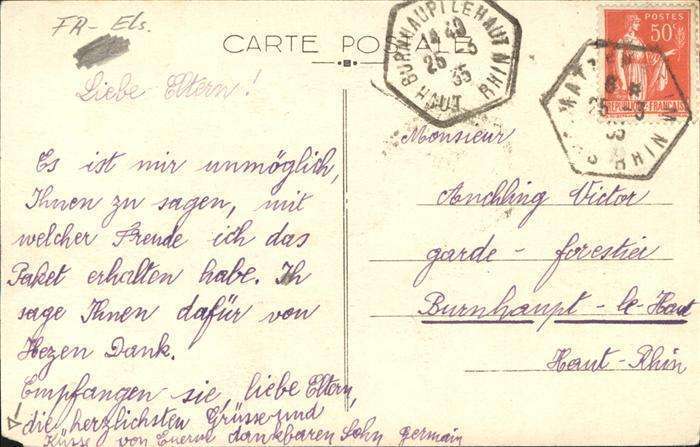 FR - Els.
CARTE POSTALE
BURNHAUPT LE HAUT
14 40
25 - 3
35
HAUT RHIN
POSTES
50c
REPUBLIQUE FRANÇAISE
25 - 3
35
RHIN
Liebe Eltern!
Es ist mir unmöglich,
Ihnen zu sagen, mit
welcher Freude ich das
Paket erhalten habe. Ih
sage Ihnen dafür von
Hezen Dank.
Empfangen sie, liebe Eltern,
die herzlichsten Grüsse und
Küsse von Euerm dankbaren Sohn germain
Monsieur
Anchling Victor
garde - forestier
Burnhaupt - le - Haut
Haut - Rhin